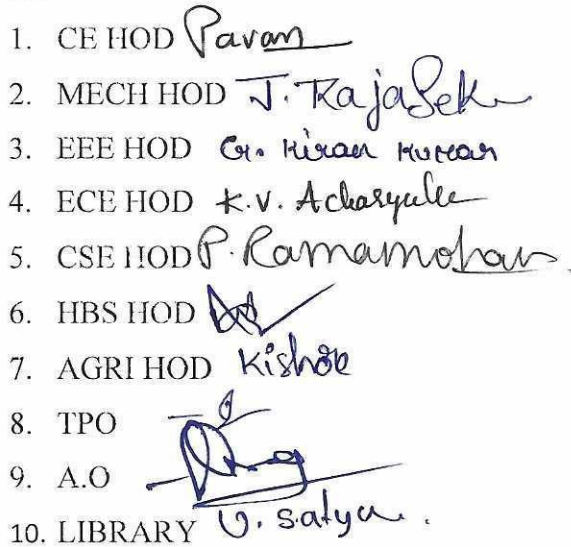 1. CE HOD Pavan
2. MECH HOD J. RajaSek
3. EEE HOD G. Kiran Kumar
4. ECE HOD K.V. Acharyulu
5. CSE HOD P. Ramamohan
6. HBS HOD
7. AGRI HOD Kishore
8. TPO
9. A.O
10. LIBRARY U. Satya.